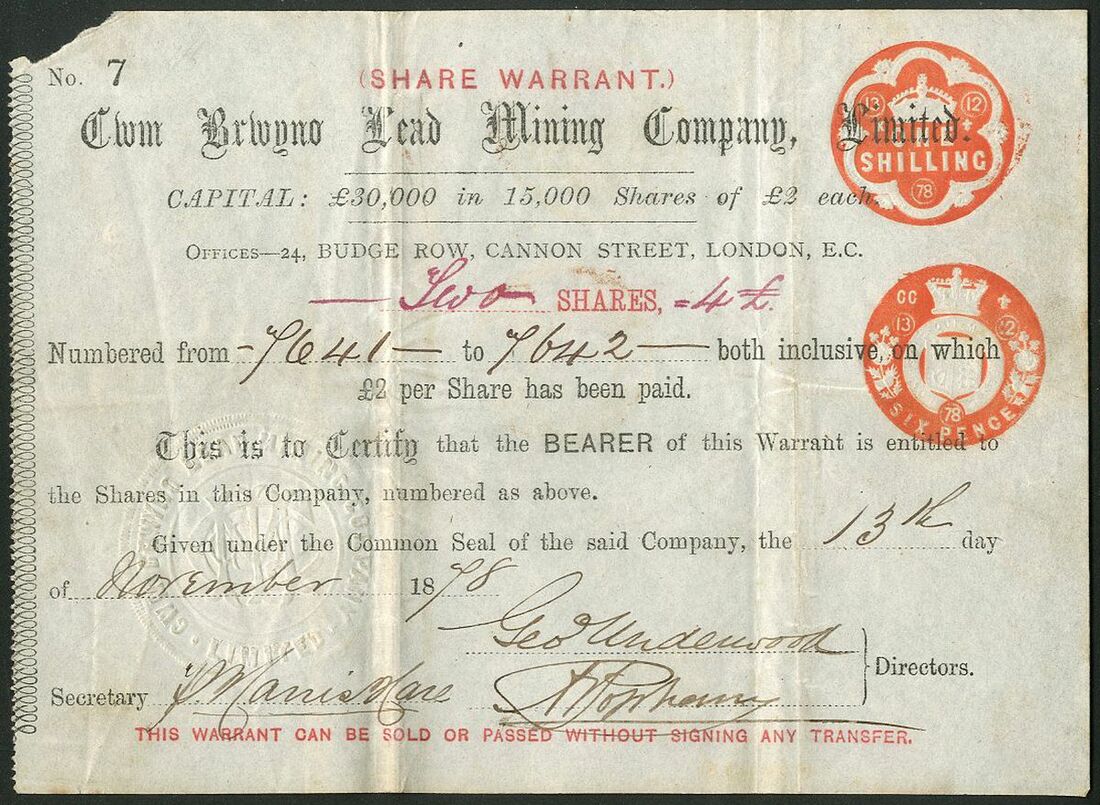 No. 7
(SHARE WARRANT.)
Cwm Brwyno Lead Mining Company, Limited.
CAPITAL: £30,000 in 15,000 Shares of £2 each.
OFFICES—24, BUDGE ROW, CANNON STREET, LONDON, E.C.
Two SHARES, =4£.
Numbered from 7641 to 7642 both inclusive, on which
£2 per Share has been paid.
This is to Certify that the BEARER of this Warrant is entitled to
the Shares in this Company, numbered as above.
Given under the Common Seal of the said Company, the 13th day
of November 1878
Geo Underwood
Directors.
Secretary
THIS WARRANT CAN BE SOLD OR PASSED WITHOUT SIGNING ANY TRANSFER.
13 12
SHILLING
78
CC
13 12
78
SIX PENCE